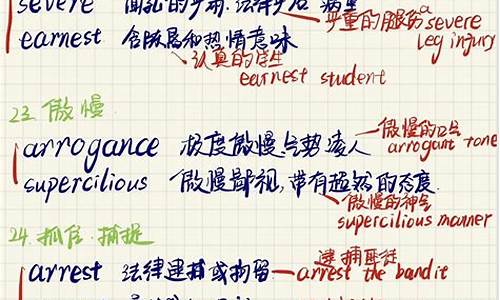 severe
严重的服伤 a severe leg injury
earnest 含庄焉和热情意味
认真的学生
earnest student
23. 傲慢
arrogance 极度傲慢.气势凌人
傲慢的口气
arrogant tone
supercilious 傲慢鄙视,带有超然的态度.
傲慢的神气
supercilious manner
24. 抓住.捕捉
arrest 法律逮捕或拘留
逮捕匪徒
arrest the bandit